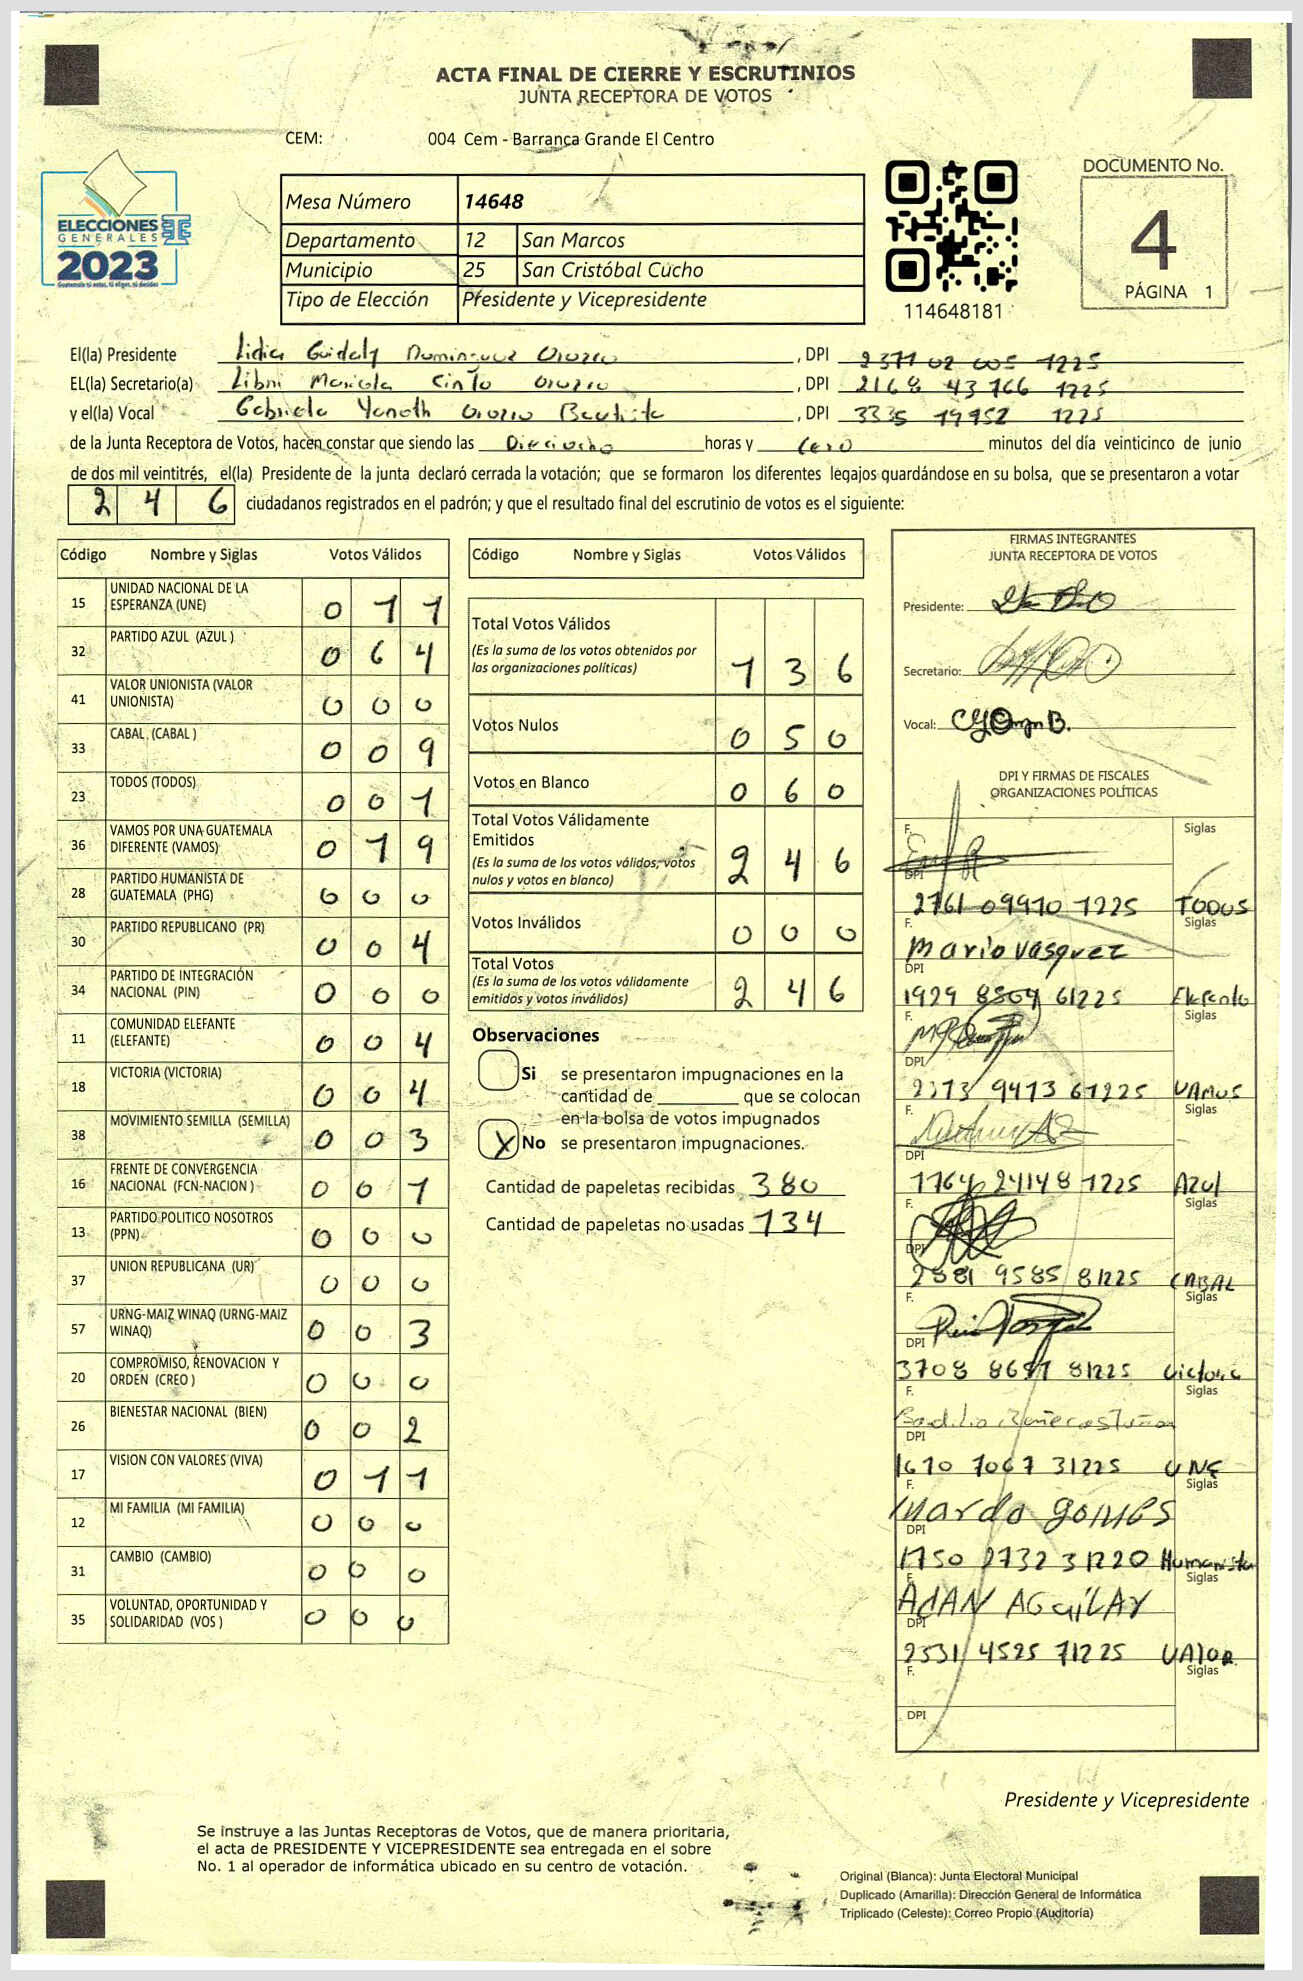 ACTA FINAL DE CIERRE Y ESCRUTINIOS
JUNTA RECEPTORA DE VOTOS
CEM: 004 Cem - Barranca Grande El Centro
ELECCIONES
GENERALES
2023
Guatemala tú eres, tú eliges, tú decides
Mesa Número 14648
Departamento 12 San Marcos
Municipio 25 San Cristóbal Cucho
Tipo de Elección Presidente y Vicepresidente
114648181
DOCUMENTO No.
4
PÁGINA 1
El(la) Presidente Lidia Guidaly Dominguez Orozco, DPI 2371 02 005 1225
EL(la) Secretario(a) Libni Mariela Cinto Orozco, DPI 2168 43 766 1225
y el(la) Vocal Gabriela Yaneth Orozco Bautista, DPI 3335 19952 1225
de la Junta Receptora de Votos, hacen constar que siendo las Dieciocho horas y Cero minutos del día veinticinco de junio
de dos mil veintitrés, el(la) Presidente de la junta declaró cerrada la votación; que se formaron los diferentes legajos guardándose en su bolsa, que se presentaron a votar
2 4 6 ciudadanos registrados en el padrón; y que el resultado final del escrutinio de votos es el siguiente:
Código Nombre y Siglas Votos Válidos
15 UNIDAD NACIONAL DE LA ESPERANZA (UNE) 0 1 1
32 PARTIDO AZUL (AZUL ) 0 6 4
41 VALOR UNIONISTA (VALOR UNIONISTA) 0 0 0
33 CABAL (CABAL ) 0 0 9
23 TODOS (TODOS) 0 0 1
36 VAMOS POR UNA GUATEMALA DIFERENTE (VAMOS) 0 1 9
28 PARTIDO HUMANISTA DE GUATEMALA (PHG) 0 0 0
30 PARTIDO REPUBLICANO (PR) 0 0 4
34 PARTIDO DE INTEGRACIÓN NACIONAL (PIN) 0 0 0
11 COMUNIDAD ELEFANTE (ELEFANTE) 0 0 4
18 VICTORIA (VICTORIA) 0 0 4
38 MOVIMIENTO SEMILLA (SEMILLA) 0 0 3
16 FRENTE DE CONVERGENCIA NACIONAL (FCN-NACION ) 0 0 1
13 PARTIDO POLITICO NOSOTROS (PPN) 0 0 0
37 UNION REPUBLICANA (UR) 0 0 0
57 URNG-MAIZ WINAQ (URNG-MAIZ WINAQ) 0 0 3
20 COMPROMISO, RENOVACION Y ORDEN (CREO ) 0 0 0
26 BIENESTAR NACIONAL (BIEN) 0 0 2
17 VISION CON VALORES (VIVA) 0 1 1
12 MI FAMILIA (MI FAMILIA) 0 0 0
31 CAMBIO (CAMBIO) 0 0 0
35 VOLUNTAD, OPORTUNIDAD Y SOLIDARIDAD (VOS ) 0 0 0
Código Nombre y Siglas Votos Válidos
Total Votos Válidos
(Es la suma de los votos obtenidos por
las organizaciones políticas) 1 3 6
Votos Nulos 0 5 0
Votos en Blanco 0 6 0
Total Votos Válidamente
Emitidos
(Es la suma de los votos válidos, votos
nulos y votos en blanco) 2 4 6
Votos Inválidos 0 0 0
Total Votos
(Es la suma de los votos válidamente
emitidos y votos inválidos) 2 4 6
Observaciones
Si se presentaron impugnaciones en la
cantidad de ________ que se colocan
en la bolsa de votos impugnados
X No se presentaron impugnaciones.
Cantidad de papeletas recibidas 380
Cantidad de papeletas no usadas 134
FIRMAS INTEGRANTES
JUNTA RECEPTORA DE VOTOS
Presidente:
Secretario:
Vocal:
DPI Y FIRMAS DE FISCALES
ORGANIZACIONES POLÍTICAS
F. Siglas
DPI
2761 09970 1225 TODOS
F. Siglas
Mario Vasquez
DPI
1929 8509 61225 Elefante
F. Siglas
DPI
2373 9473 61225 VAMOS
F. Siglas
DPI
1764 24148 1225 Azul
F. Siglas
DPI
2581 9585 81225 CABAL
F. Siglas
DPI
3708 8657 81225 Victoria
F. Siglas
DPI
1670 7067 31225 UNE
F. Siglas
Mardo gomes
DPI
1750 2732 31220 Humanista
F. Siglas
AdAN AGuiLAr
DPI
2531 4525 71225 VAlOR
F. Siglas
DPI
Presidente y Vicepresidente
Se instruye a las Juntas Receptoras de Votos, que de manera prioritaria,
el acta de PRESIDENTE Y VICEPRESIDENTE sea entregada en el sobre
No. 1 al operador de informática ubicado en su centro de votación.
Original (Blanca): Junta Electoral Municipal
Duplicado (Amarilla): Dirección General de Informática
Triplicado (Celeste): Correo Propio (Auditoría)